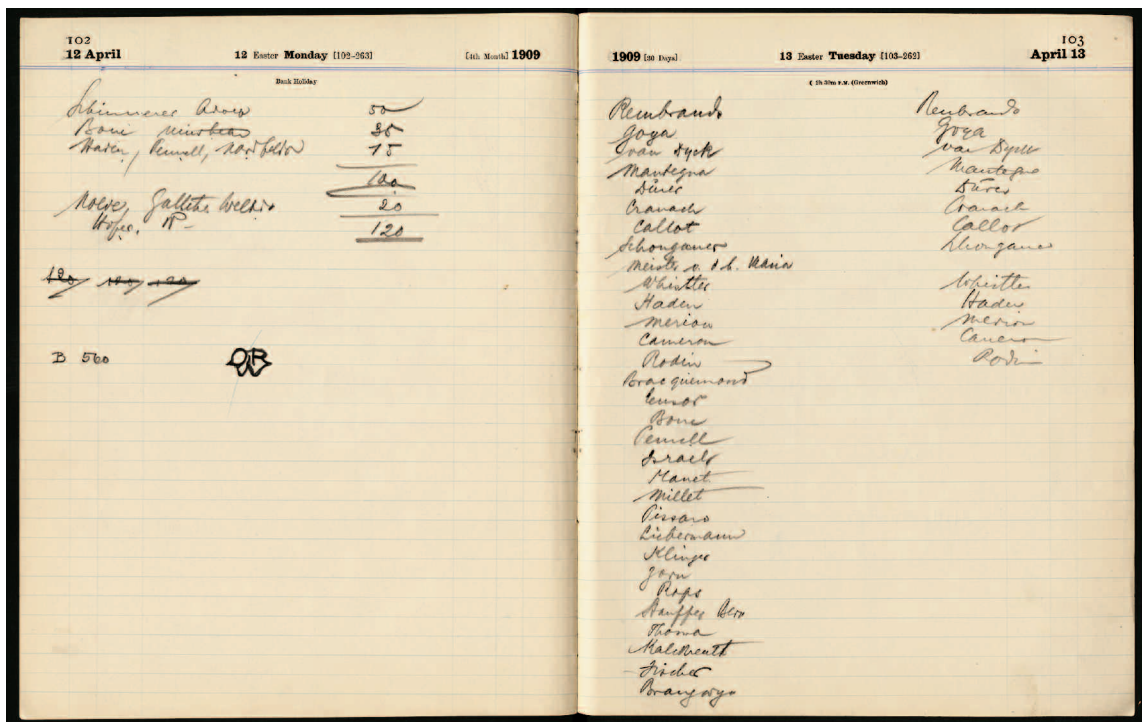 102
12 April
12 Easter Monday [102-263]
[4th Month] 1909
Bank Holiday
50
Bone 35
Haden, Pennell, 15
100
Nolde, 20
Hofer, 120
120 120 120
B 560
103
1909 [30 Days]
13 Easter Tuesday [103-262]
April 13
☾ 2h 30m P.M. (Greenwich)
Rembrandt
Goya
van Dyck
Mantegna
Dürer
Cranach
Callot
Schongauer
Meister v. d. h. Maria
Whistler
Haden
Merion
Cameron
Rodin
Bracquemond
Ensor
Bone
Pennell
Israels
Manet
Millet
Pissaro
Liebermann
Klinger
Zorn
Rops
Stauffer Bern
Thoma
Kalckreuth
Fischer
Brangwyn
Rembrandt
Goya
van Dyck
Mantegna
Dürer
Cranach
Callot
Schongauer
Whistler
Haden
Merion
Cameron
Rodin